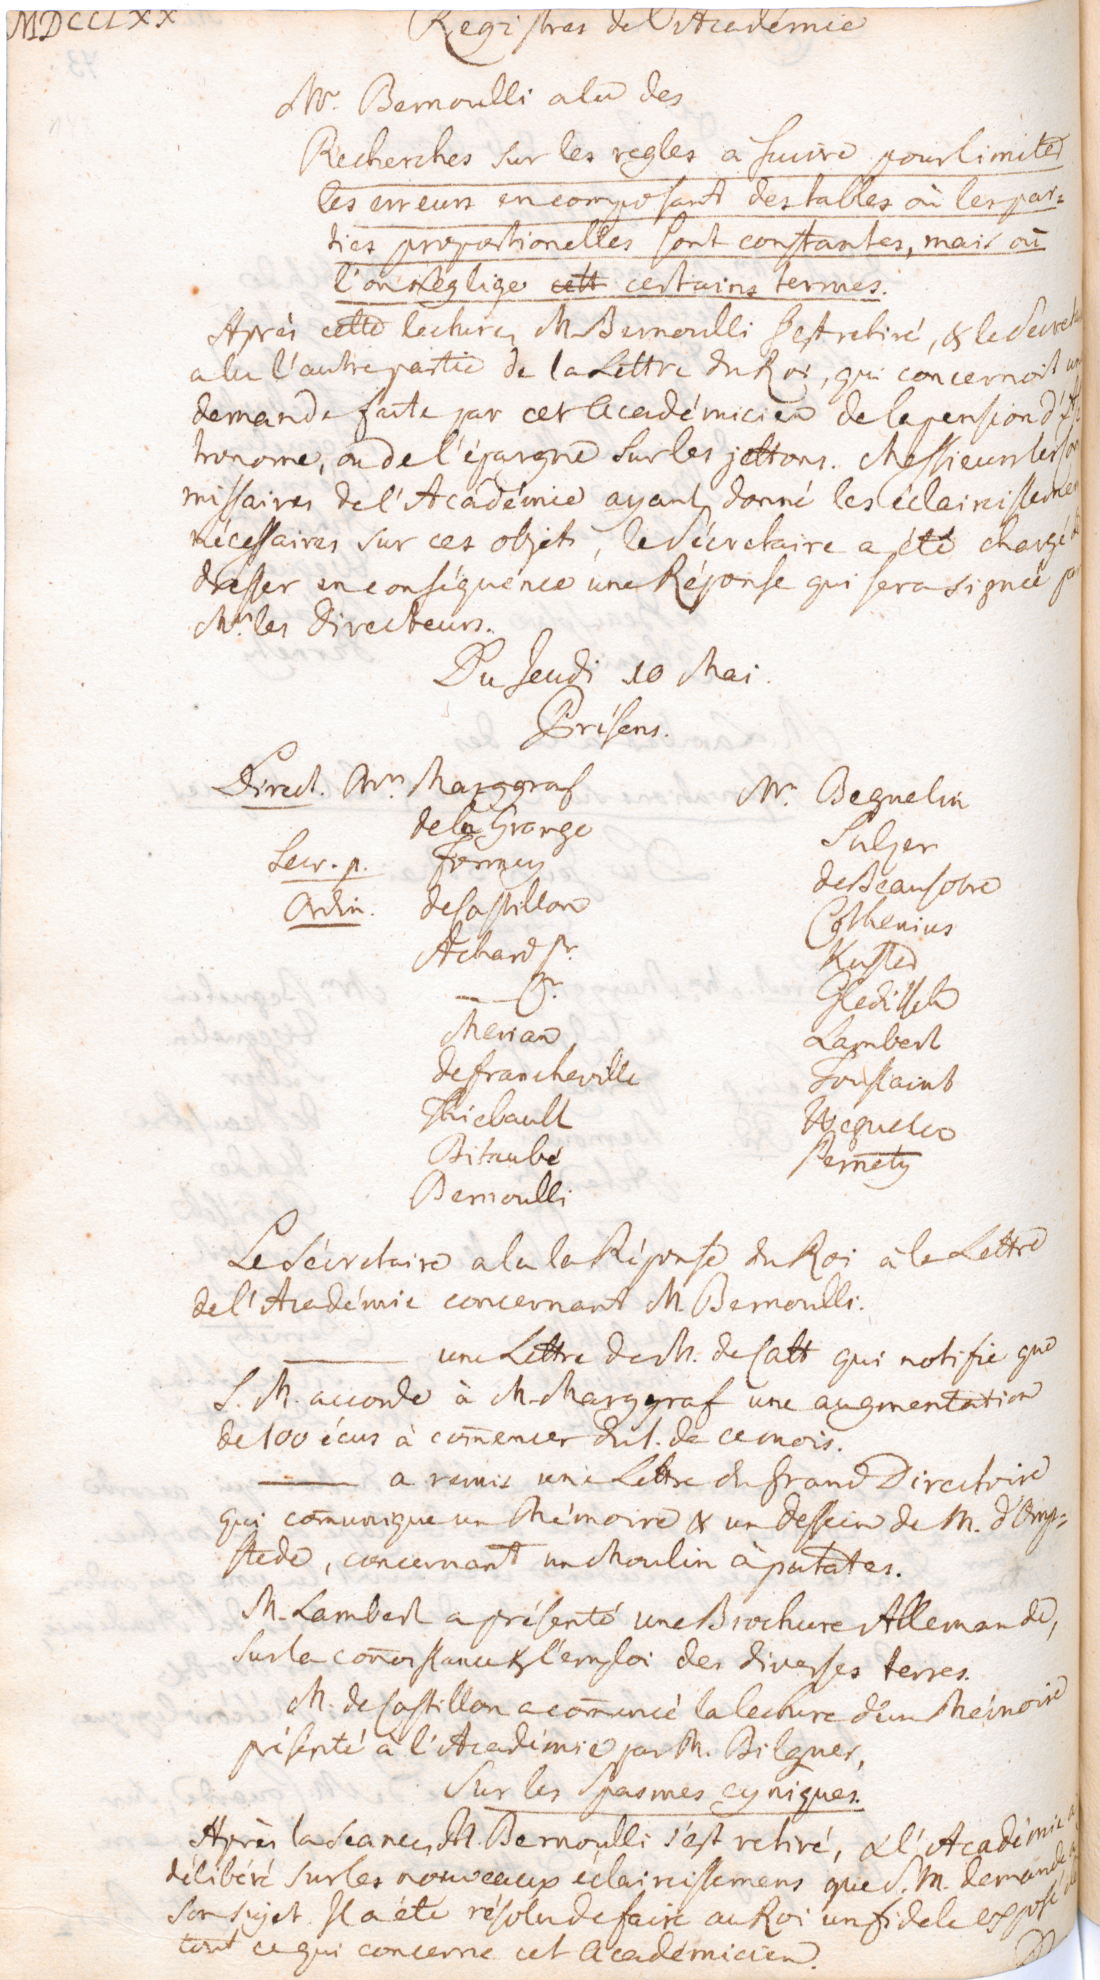 MDCCLXX
Registres de l'Académie
Mr. Bernoulli a lu des
Recherches sur les regles a suivre pour limiter
les erreurs en composant des tables où les par=
ties proportionelles sont constantes, mais où
l'on néglige cett certains termes.
Après cette lecture, M. Bernoulli s'est retiré, & le Secret
a lu l'autre partie de la Lettre du Roi, qui concernoit un
demande faite par cet Académicien de la pension d'As
tronome, ou de l'épargne sur les jettons. Messieurs les Com
missaires de l'Académie ayant donné les éclaircissemen
nécessaires sur ces objets, le Sécretaire a été chargé de
dresser en conséquence une Réponse qui sera signée par
Mrs. les Directeurs.
Du Jeudi 10 Mai.
Présens.
Direct. Mrs. Marggraf
de la Grange
Secr. p. Formey
Ordin. de Castillon
Achard Sr.
—— Jr.
Merian
de Francheville
Thiebault
Bitaubé
Bernoulli
Mr. Beguelin
Sulzer
de Beausobre
Cothenius
Kuster
Gleditsch
Lambert
Toussaint
Weguelin
Pernety
Le Sécretaire a lu la Réponse du Roi à la Lettre
de l'Académie concernant M. Bernoulli.
—— une Lettre de M. de Catt qui notifie que
S. M. accorde à M. Marggraf une augmentation
de 100 écus à com̄encer du 1. de ce mois.
—— a remis une Lettre du Grand Directoire
qui com̄unique un Mémoire & un dessein de M. d'Omp=
stede, concernant un Moulin à patates.
M. Lambert a présenté une Brochure Allemande,
sur la con̄oissance & l'emploi des diverses terres.
M. de Castillon a com̄encé la lecture d'un Mémoire
présenté à l'Académie par M. Bilguer,
Sur les Spasmes cyniques.
Après la Séance, M. Bernoulli s'est retiré, & l'Académie a
délibéré sur les nouveaux éclaircissemens que S. M. demande à
son sujet. Il a été résolu de faire au Roi un fidele exposé de
tout ce qui concerne cet Académicien.